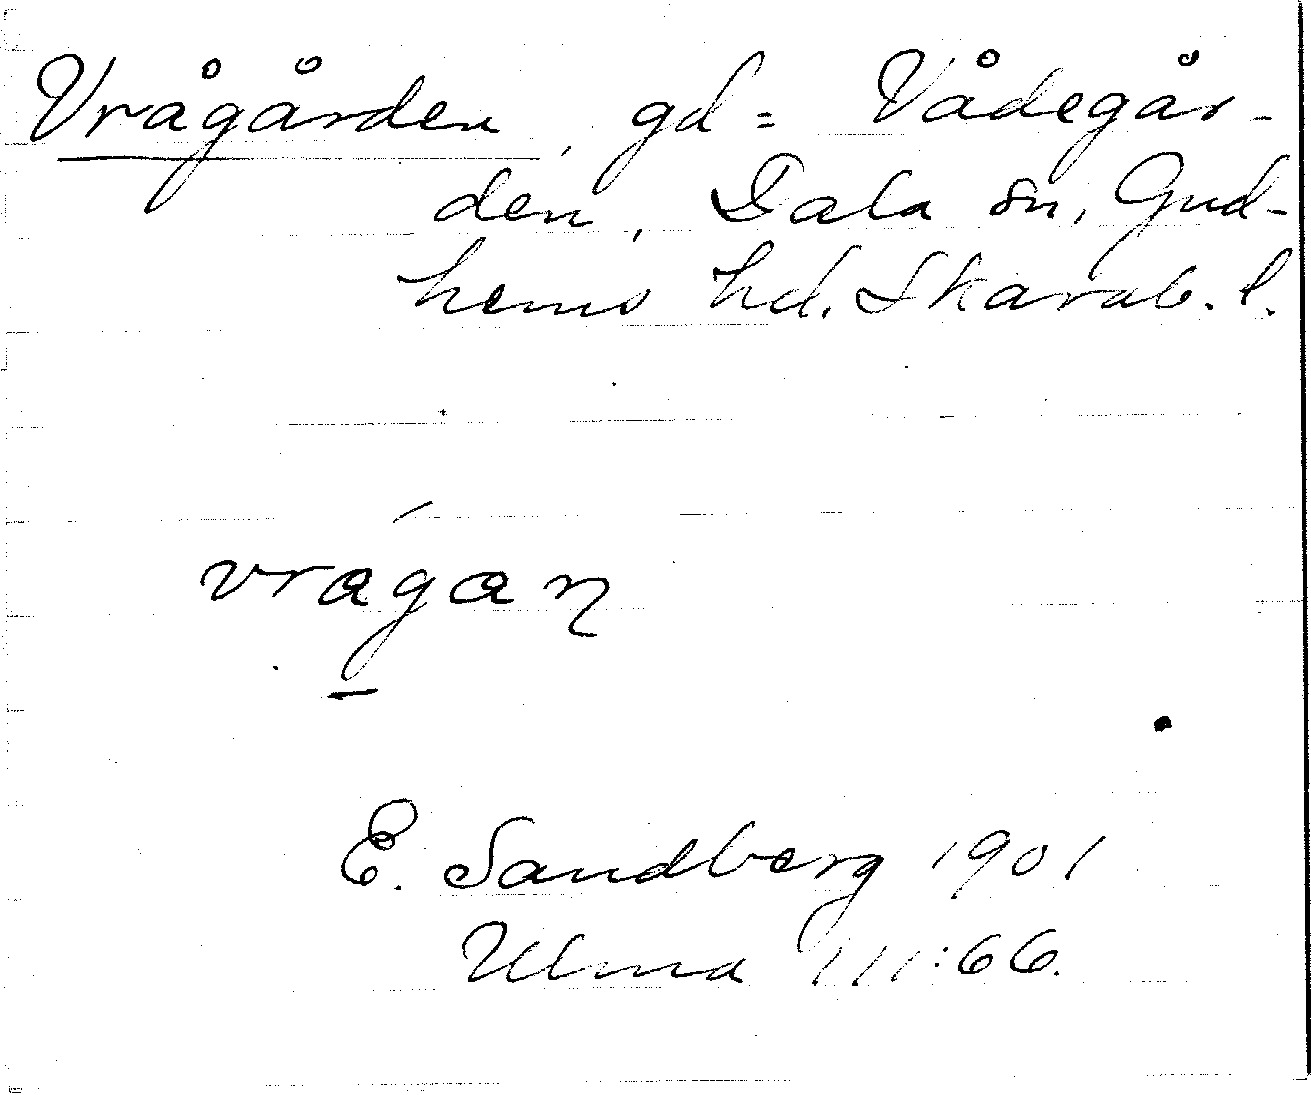 Vrågården, gd = Vådegår-
den, Dala sn, Gud-
hems hd. Skarab. l.
vrágan
E. Sandberg 1901
Ulma 111:66.